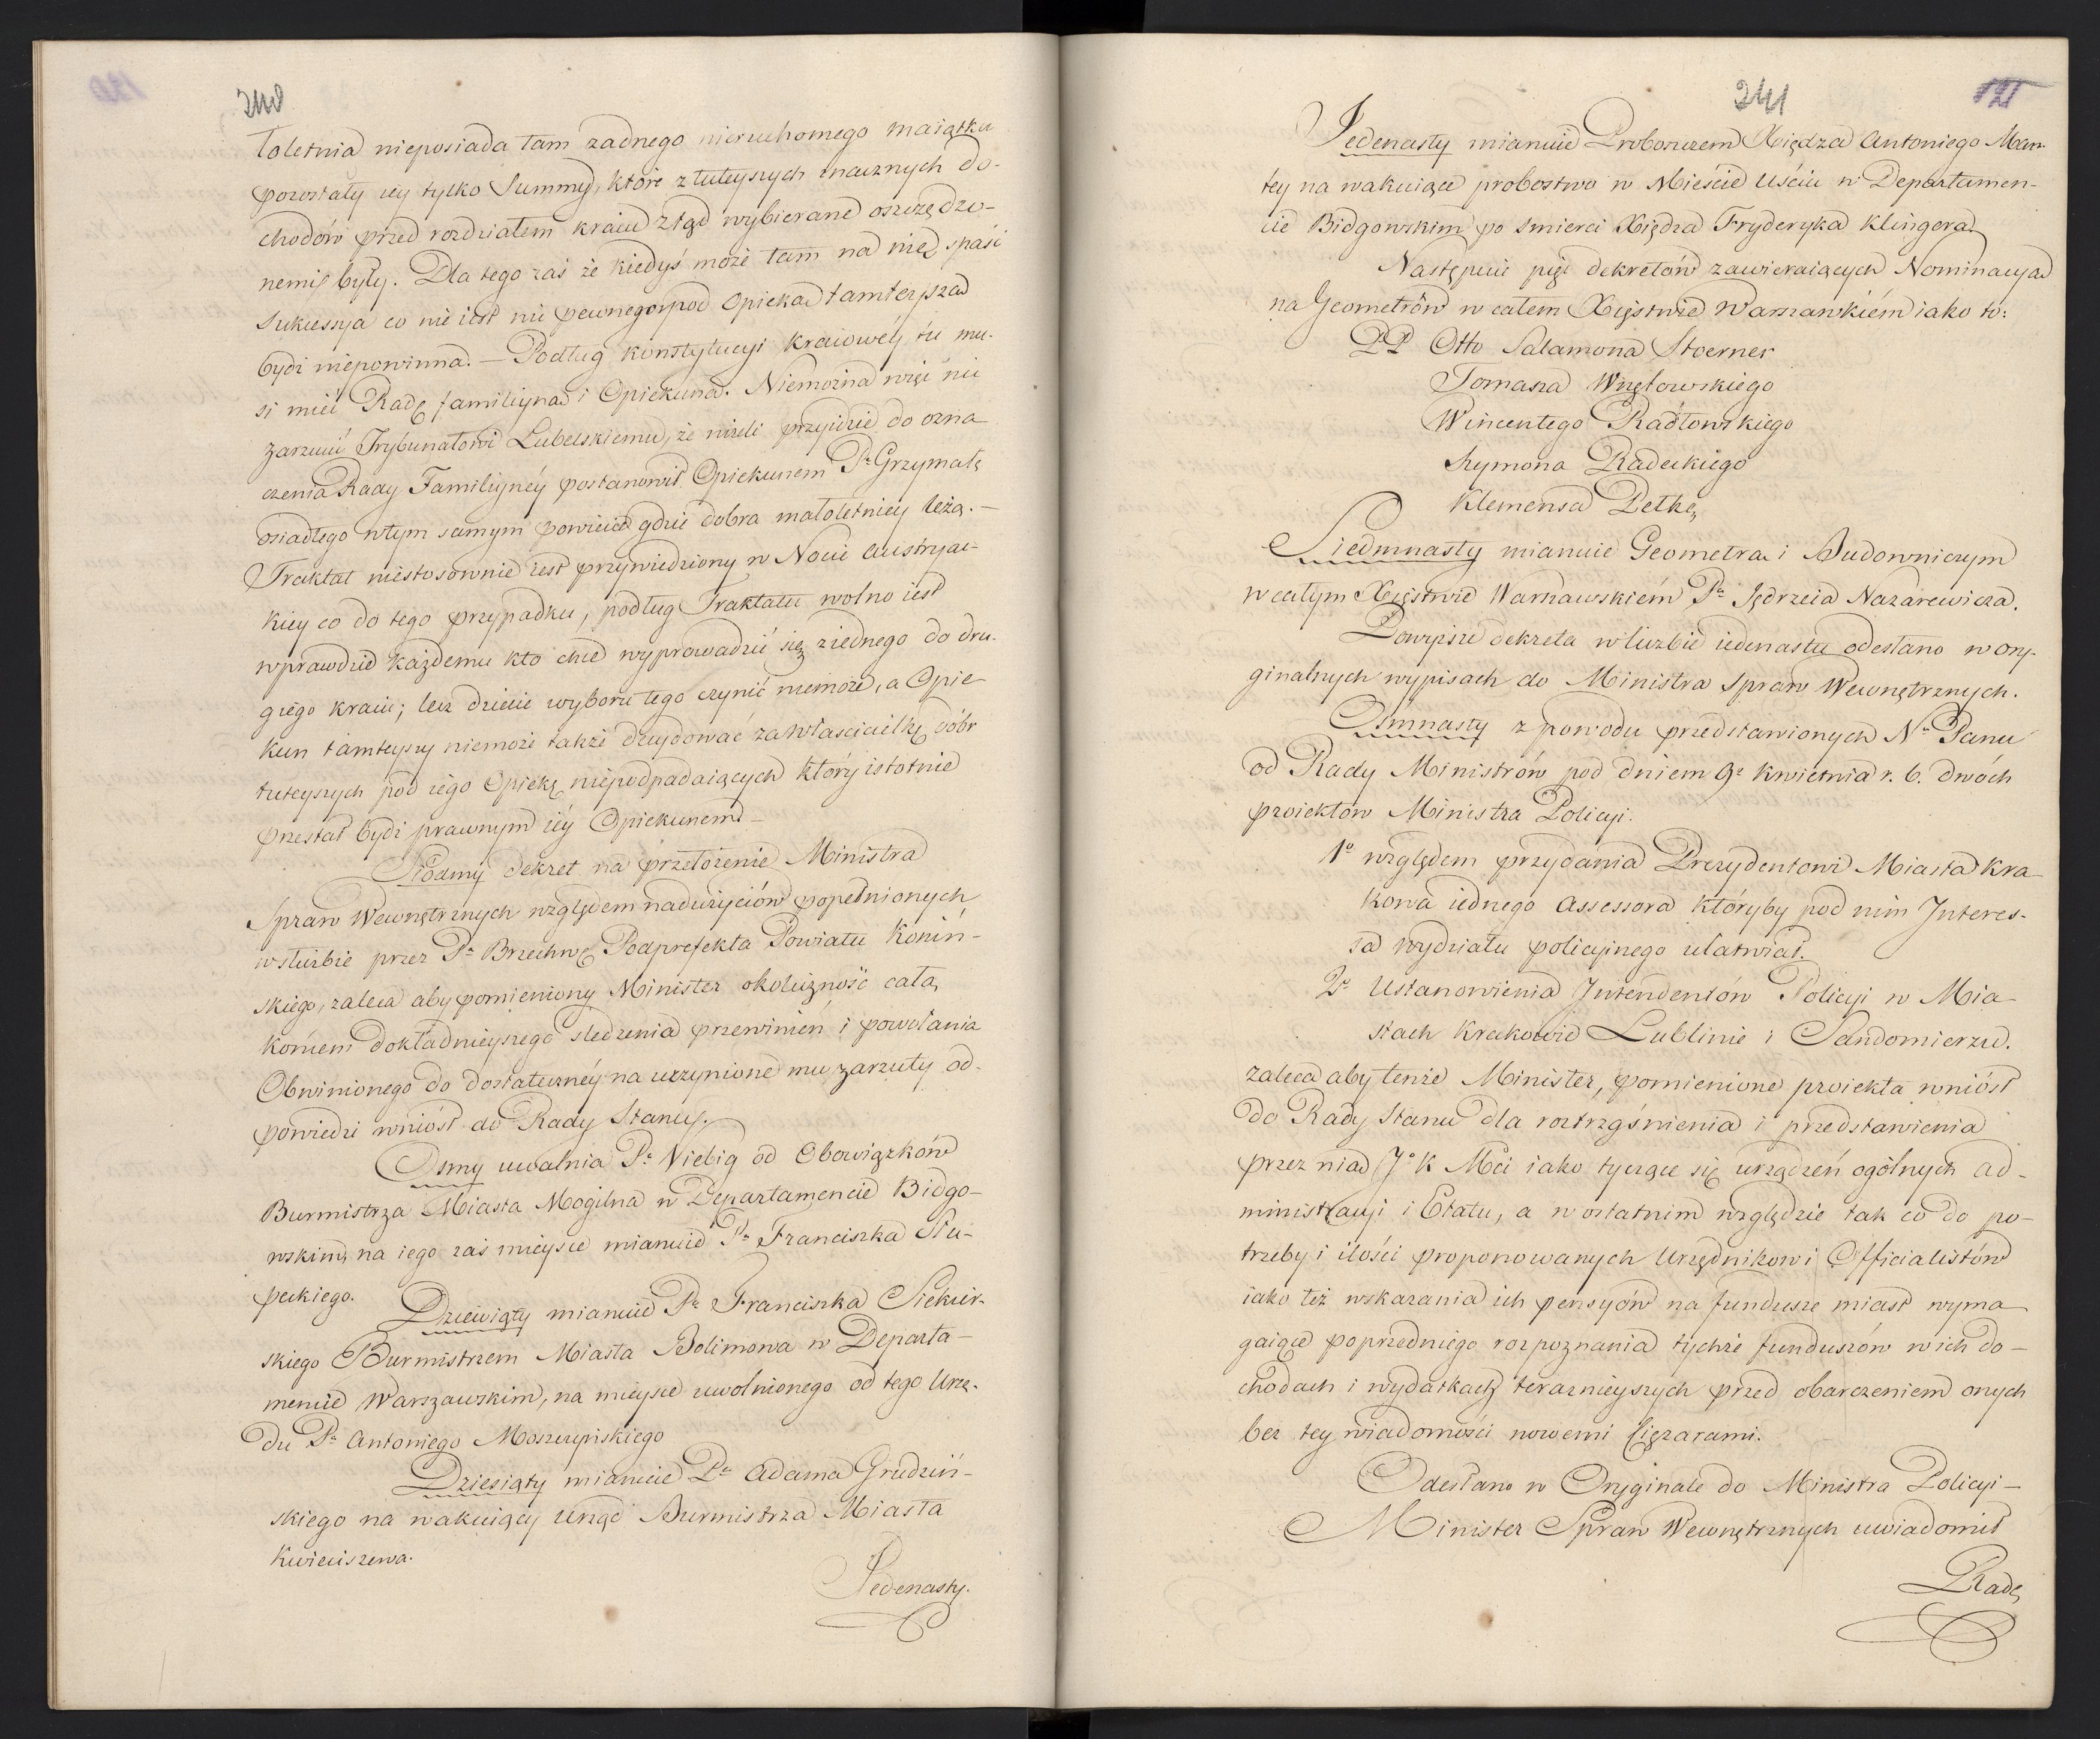 240
łoletnia nieposiada tam żadnego nieruchomego maiątku
pozostały iey tylko Summy, które z tuteyszych znacznych do-
chodów przed rozdziałem kraiu ztąd wybierane oszczędzo-
nemi były. Dla tego zaś że kiedyś może tam na nię spaśdź
Sukcessya co nie iest nic pewnego pod Opieką tamteyszą
bydź niepowinna. — Podług konstytucyi kraiowéj tu mu-
si mieć Radę familiyną i Opiekuna. Niemożna więc nic
zarzucić Trybunałowi Lubelskiemu, że nieli przyidzie do ozna
czenia Rady Familiynéy postanowił Opiekunem Pa Grzymałę
osiadłego w tym samym powiecie gdzie dobra małoletniey leżą. —
Traktat niestosownie iest przywiedziony w Nocie Austryac-
kiey co do tego przypadku, podług Traktatu wolno iest
wprawdzie każdemu kto chce wyprowadzić się z iednego do dru-
giego kraiu; lecz dziecie wyboru tego czynić niemoże, a Opie
kun tamteyszy niemoże także decydować za właścicielkę dóbr
tuteyszych pod iego Opiekę niepodpadaiących który istotnie
przestał bydź prawnym iéy Opiekunem —
Siódmy dekret na przełożenie Ministra
Spraw Wewnętrznych względem nadużyciów popełnionych
w służbie przez Pa Brzechwę Podprefekta Powiatu Koniń-
skiego, zaleca aby pomieniony Minister okoliczność całą
końcem dokładnieyszego śledzenia przewinień i powołania
Obwinionego do dostatecznéy na uczynione mu zarzuty od-
powiedzi wniósł do Rady Stanu.
Osmy uwalnia Pa Niebig od Obowiązków
Burmistrza Miasta Mogilna w Departamencie Bidgo-
wskim, na iego zaś mieysce mianuie Pa Franciszka Słu-
peckiego.
Dziewiąty mianuie Pa Franciszka Siekier-
skiego Burmistrzem Miasta Bolimowa w Departa-
mencie Warszawskim, na mieysce uwolnionego od tego Urzę-
du Pa Antoniego Moszczyńskiego
Dziesiąty mianuie Pa Adama Grudziń-
skiego na wakuiący Urząd Burmistrza Miasta
Kwieciszewa.
Jedenasty.
241
121
Jedenasty mianuie Proboszczem Xiędza Antoniego Man-
tey na wakuiące probostwo w Mieście Uściu w Departamen-
cie Bidgowskim po śmierci Xiędza Fryderyka Klingera
Następuie pięć dekretów zawieraiących Nominacyą
na Geometrów w całem Xięstwie Warszawskiém iako to:
PP Otto Salamona Stoerner
Tomasza Węzłowskiego
Wincentego Radłowskiego
Szymona Radeckiego
Klemensa Detkę
Siedmnasty mianuie Geometrą i Budowniczym
w całym Xięstwie Warszawskiém Pa Jędrzeia Nazarewicza.
Powyższe dekreta w liczbie iedenastu odesłano w ory-
ginalnych wypisach do Ministra Spraw Wewnętrznych.
Osmnasty z powodu przedstawionych Nu Panu
od Rady Ministrów pod dniem 9o kwietnia r. b. dwóch
proiektów Ministra Policyi.
1o względem przydania Prezydentowi Miasta Kra-
kowa iednego Assessora któryby pod nim Interes-
sa wydziału policyjnego ułatwiał.
2o Ustanowienia Intendentów Policyi w Mia-
stach Krakowie Lublinie i Sandomierzu.
zaleca aby tenże Minister, pomienione proiekta wniósł
do Rady Stanu dla roztrzgśnienia i przedstawienia
przez nią Jo K Mci iako tyczące się urządzeń ogólnych ad-
ministracyi i Etatu, a w ostatnim względzie tak co do po-
trzeby i ilości proponowanych Urzędników i Officialistów
iako też wskazania ich pensyów na fundusze miast wyma
gaiące poprzedniego rozpoznania tychże funduszów w ich do-
chodach i wydatkach terazniejszych przed obarczeniem onych
bez tey wiadomości nowemi ciężarami.
Odesłano w Oryginale do Ministra Policyi —
Minister Spraw Wewnętrznych uwiadomił
Radę